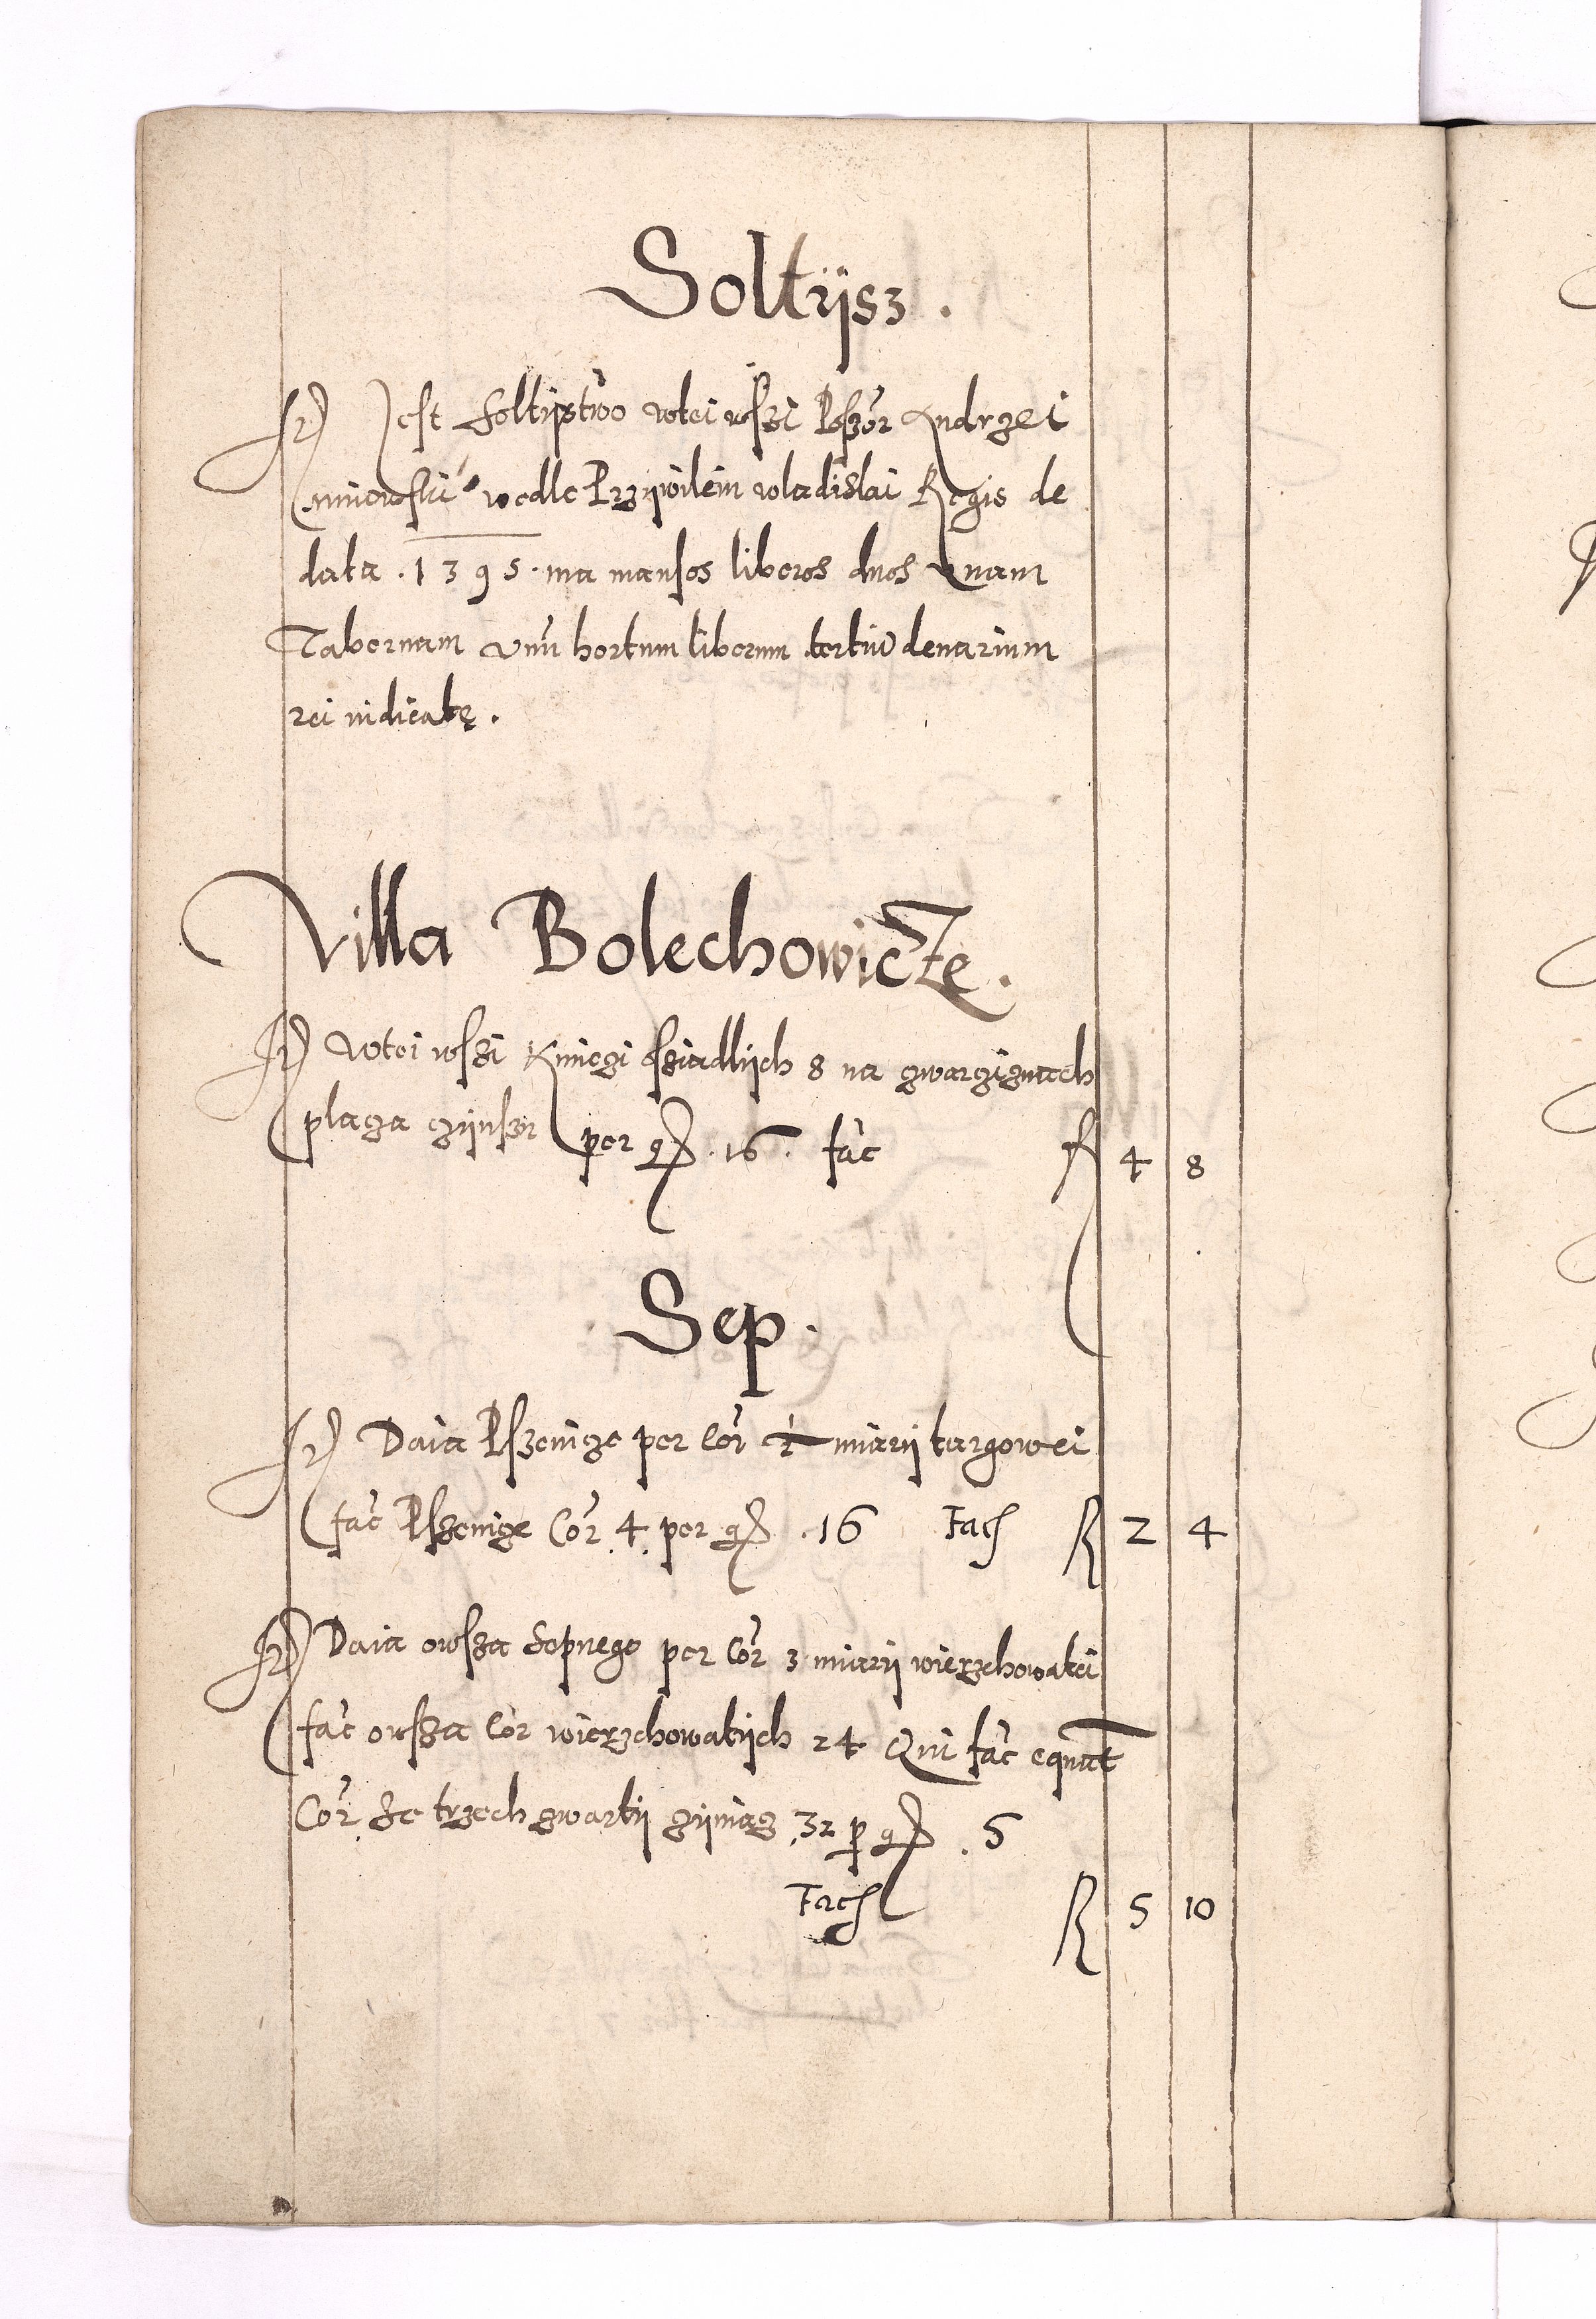 Soltijsz.
It) Jest Soltijstwo wtei wszi Poszor Andrzei
wedle Przijwilein wladislai Regis de
data . 1395 . ma mansos liberos duos vnam
Tabernam vnu hortum liberum tertiu denarium
rei iudicatę.
Villa Bolechowicze.
It) wtei wszi Kmiezi osziadlijch 8 na zwarzignach
placza czijnszu per g 16 fac f 4 8
Sep.
It) Daia Pszenicze per cor ½ miarij targowei
fac Pszenicze Cor 4. per g . 16 Fach f 2 4
It) Daia owsza Sepnego per cor 3 miarij wierzchowatei
fac owsza cor wierzchowatijch 24 Qui fac equat
Cor Se trzech zwartij 32 p g . 5
Fach f 5 10